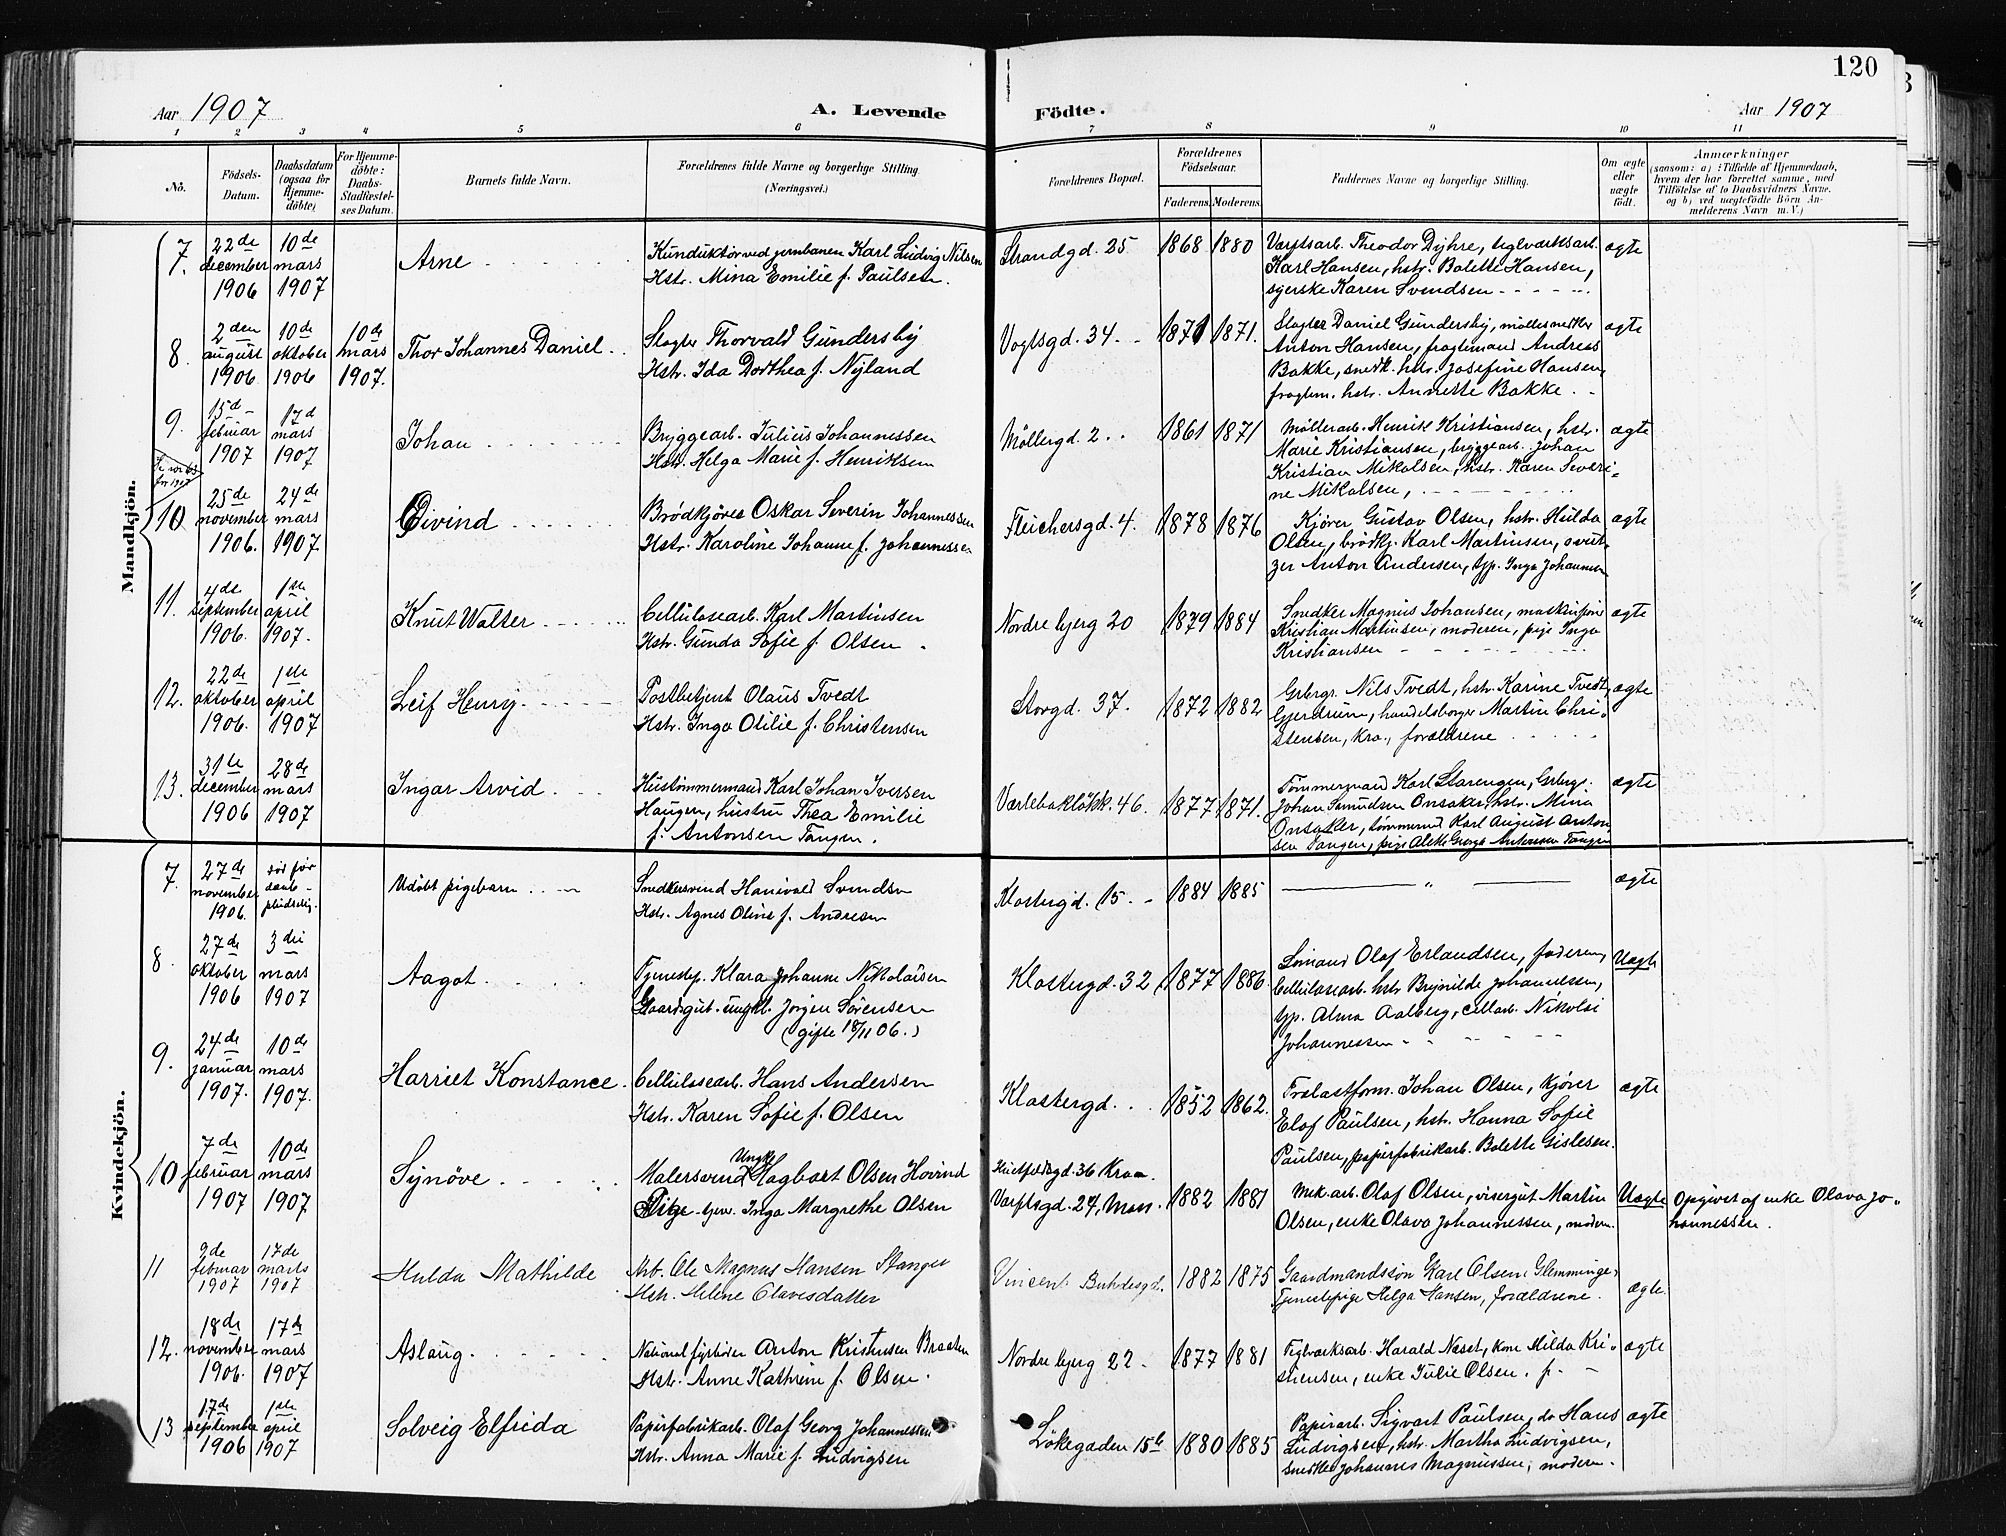 120
Aar 1907
A. Levende
Födte.
Aar 1907
1 2 3 4 5 6 7 8 9 10 11
No.
Födsels-
Datum.
Daabsdatum
(ogsaa for
Hjemme-
döbte)
For Hjemme-
döbte:
Daabs-
Stadfæstel-
ses Datum.
Barnets fulde Navn.
Forældrenes fulde Navne og borgerlige Stilling
(Næringsvei.)
Forældrenes Bopæl.
Forældrenes
Födselsaar.
Faderens. Moderens.
Faddernes Navne og borgerlige Stilling.
Om ægte
eller
uægte
födt.
Anmærkninger
(saasom: a) i Tilfælde af Hjemmedaab,
hvem der har forrettet samme, med
Tilföielse af to Daabsvidners Navne.
og b) ved uægtefödte Börn An-
melderens Navn m. V.)
Mandkjön.
7. 22de december 1906
10de mars 1907
Arne
Kunduktör ved jernbanen Karl Ludvig Nilsen
Hstr. Mina Emilie f. Paulsen.
Strandgd. 25
1868 1880
Værftsarb. Theodor Dyhre, teglværksarb.
Karl Hansen, hstr. Bolette Hansen,
syerske Karen Svendsen
ægte
8. 2den august 1906
10de oktober 1906
10de mars 1907.
Thor Johannes Daniel
Slagter Thorvald Gundersby
Hstr. Ida Dorthea f. Nyland
Vogtsgd. 34.
1871 1871.
Slagter Daniel Gundersby, möllesnedker
Anton Hansen, fragtemand Andreas
Bakke, snedk. hstr. Josefine Hansen,
fragtem. hstr. Annette Bakke
ægte
9. 15d februar 1907
17d mars 1907
Johan
Bryggearb. Julius Johannessen
Hstr. Helga Marie f. Henriksen
Möllergd. 2
1861 1871
Möllerarb. Henrik Kristiansen, hstr.
Marie Kristiansen, bryggearb. Johan
Kristian Mikalsen, hstr. Karen Severi-
ne Mikalsen,
ægte
10. 25de november 1906.
24de mars 1907.
Eivind
Brödkjörer Oskar Severin Johannessen
Hstr. Karoline Johanne f. Johannessen
Fleichersgd. 4.
1878 1876
Kjörer Gustav Olsen, hstr. Hulda
Olsen, brödkj. Karl Martinsen, sveit-
zer Anton Andersen, tjp. Inga Johannsen
ægte
11. 4de september 1906.
1ste april 1907.
Knut Walter
Cellulosearb. Karl Martinsen
Hstr. Gunda Sofie f. Olsen
Nordre bjerg 20
1879 1884
Snedker Magnus Johansen,
Kristian Martinsen, moderen, pige Inga
Kristiansen
ægte
12. 22de oktober 1906.
1ste april 1907
Leif Henry
Postbetjent Olaus Tvedt
Hstr. Inga Otilie f. Christensen
Storgd. 37.
1872 1882
Grbgr. Nils Tvedt, hstr. Karine Tvedt,
Gjerdrum, handelsborger Martin Chri-
stensen, Kra., forældrene
ægte
13. 31te december 1906
28de mars 1907
Ingar Arvid
Hustömmermand Karl Johan Iversen
Haugen, hustru Thea Emilie
f. Antonsen Tangen.
46.
1877 1871.
Tömmermand Karl Starengen, Grbrgs.
Johan Onsaker, hstr. Mina
Onsaker, tömmermd Karl August Anton
sen Tangen, pige Antonsen Tangen
ægte
Kvindekjön.
7. 27de november 1906.
död för
daab
Udöbt pigebarn
Snedkersvend Hanivald Svendsen
Hstr. Agnes Oline f. Andresen
Klostergd. 15.
1884 1885
"
ægte
8. 27de oktober 1906
3die mars 1907
Aagot
Tjenestep. Klara Johanne Nikolaisen
Gaardsgut ungkl. Jörgen Sörensen
(gifte 18/11 06.)
Klostergd. 32
1877 1886
Sömand Olaf Erlandsen, faderen,
Cellulosearb. hstr Brynilde Johannessen,
tjp. Alma Aalberg, cellarb. Nikolai
Johannessen
Uægte
9. 24de januar 1907.
10de mars 1907.
Harriet Konstance
Cellulosearb. Hans Andersen
Hstr. Karen Sofie f. Olsen
Klostergd.
1852 1862.
Trælastfom. Johan Olsen, Kjörer
Elof Paulsen, hstr. Hanna Sofie
Paulsen, papirfabrikarb. Bolette Gislesen.
ægte
10 7de februar 1907
10de mars 1907
Synöve
Ungk.
Malersvend Hagbart Olsen Hovind
Pige Inga Margrethe Olsen
36 Kra
Værftsgd. 24, Moss.
1882 1881
Mek. arb. Olaf Olsen, visergut Martin
Olsen, enke Olava Johannessen, modern.
Uægte
Opgivet af enke Olava Jo-
hannessen.
11 9de februar 1907
17de marts 1907
Hulda Mathilde
Arb. Ole Magnus Hansen Stanger
Hstr. Helene Olavesdatter
Vincent Buhdesgd.
1882 1875
Gaardmandssön Karl Olsen Glemminge,
Tjenestepige Helga Hansen, forældrene.
ægte.
12. 18de november 1906.
17de mars 1907
Aslaug
Anton Kristensen Braaten
Hstr. Anne Kathrine f. Olsen.
Nordre bjerg 22
1877 1881
Teglværksarb. Harald Næset, kone Hilda Kri-
stiensen, enke Julie Olsen.
ægte
13 17de september 1906
1ste april 1907
Solveig Elfrida
Papirfabrikarb. Olaf Georg Johannessen
Hstr. Anna Marie f. Ludvigsen
Lökegaden 15b
1880 1885
Papirarb. Sigvart Paulsen, do Hans
Ludvigsen, hstr. Martha Ludvigsen,
snedker Johannes Magnussen, modern.
ægte